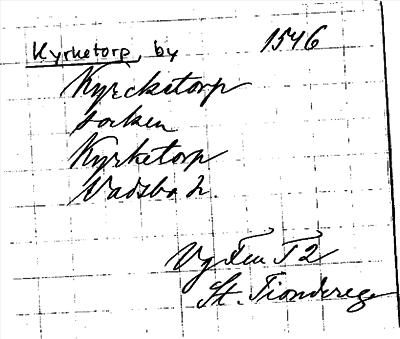 Kyrketorp, by 1546
Kyrcketorp
socken
Kyrketorp
Vadsbo h.
Vg Fen T2
St. Tionderege